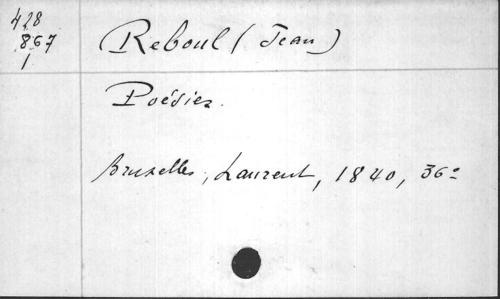 428
867
1
Reboul (Jean)
Poésies.
Bruxelles, Laurent, 1840, 36º